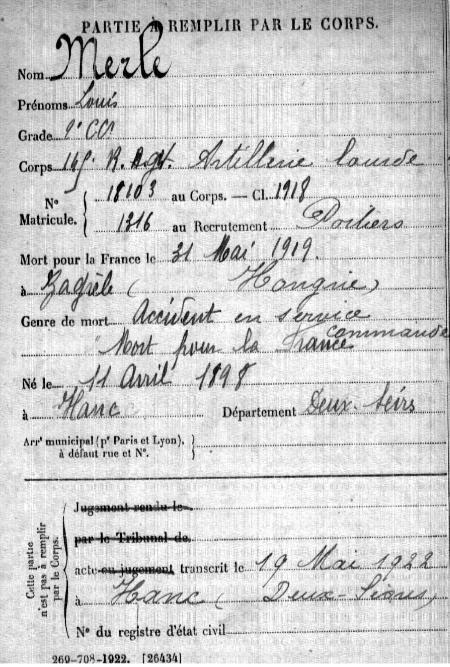 PARTIE À REMPLIR PAR LE CORPS.
Nom Merle
Prénoms Louis
Grade 2e CC
Corps 165e R. Rgt. Artillerie lourde
N° Matricule. { 18103 au Corps. — Cl. 1918
1316 au Recrutement Poitiers
Mort pour la France le 31 Mai 1919.
à Zagrèb ( Hongrie )
Genre de mort Accident en service
commandé
Mort pour la France
Né le 11 Avril 1898
à Hanc Département Deux-Sèvrs
Arrt municipal (pr Paris et Lyon),
à défaut rue et N°.
Cette partie
n'est pas à remplir
par le Corps.
Jugement rendu le
par le Tribunal de
acte ou jugement transcrit le 19 Mai 1922
à Hanc ( Deux-Sèvres )
N° du registre d'état civil
269-708-1922. [26434]